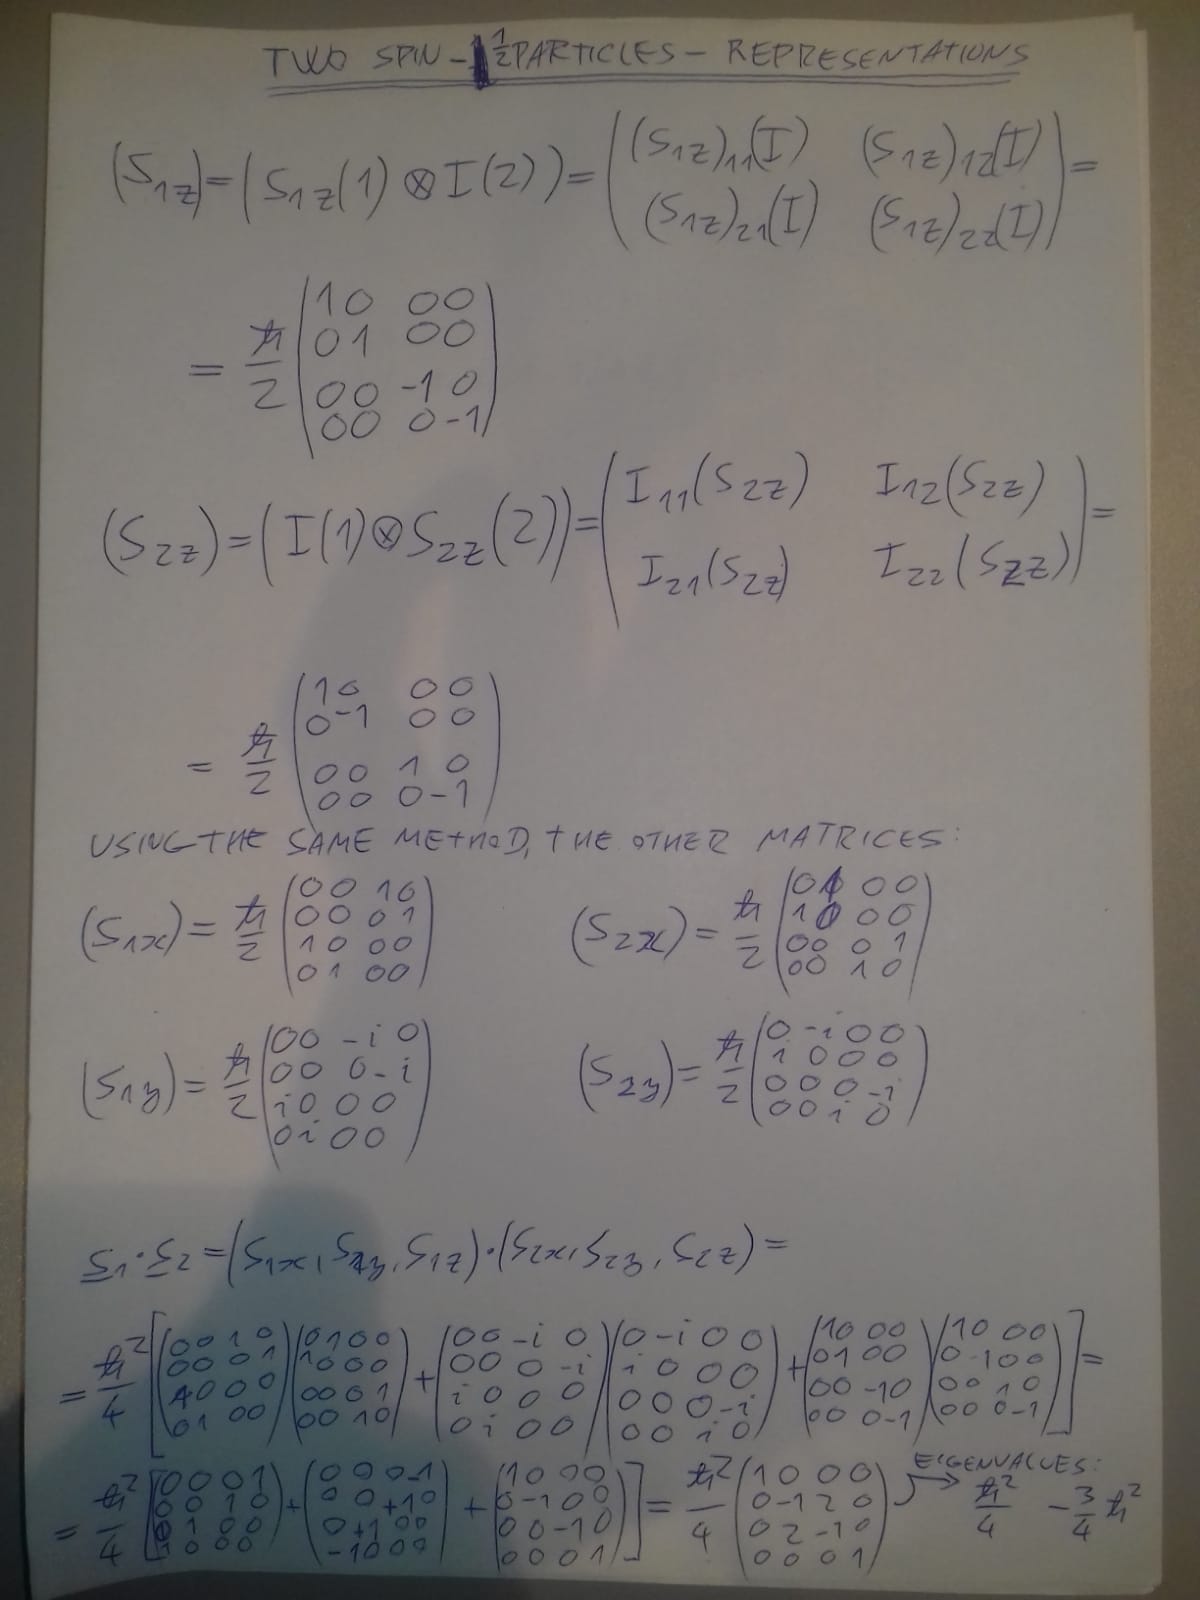 TWO SPIN-½ PARTICLES - REPRESENTATIONS
(S₁z) = (S₁z(1) ⊗ I(2)) = ( (S₁z)₁₁(I) (S₁z)₁₂(I) ) =
( (S₁z)₂₁(I) (S₁z)₂₂(I) )
= ħ/2 ( 1 0 0 0
0 1 0 0
0 0 -1 0
0 0 0 -1 )
(S₂z) = (I(1) ⊗ S₂z(2)) = ( I₁₁(S₂z) I₁₂(S₂z) ) =
( I₂₁(S₂z) I₂₂(S₂z) )
= ħ/2 ( 1 0 0 0
0 -1 0 0
0 0 1 0
0 0 0 -1 )
USING THE SAME METHOD, THE OTHER MATRICES:
(S₁x) = ħ/2 ( 0 0 1 0
0 0 0 1
1 0 0 0
0 1 0 0 )
(S₂x) = ħ/2 ( 0 1 0 0
1 0 0 0
0 0 0 1
0 0 1 0 )
(S₁y) = ħ/2 ( 0 0 -i 0
0 0 0 -i
i 0 0 0
0 i 0 0 )
(S₂y) = ħ/2 ( 0 -i 0 0
i 0 0 0
0 0 0 -i
0 0 i 0 )
S₁·S₂ = (S₁x, S₁y, S₁z)·(S₂x, S₂y, S₂z) =
= ħ²/4 [ ( 0 0 1 0 ) ( 0 1 0 0 ) + ( 0 0 -i 0 ) ( 0 -i 0 0 ) + ( 1 0 0 0 ) ( 1 0 0 0 ) ] =
( 0 0 0 1 ) ( 1 0 0 0 ) ( 0 0 0 -i ) ( i 0 0 0 ) ( 0 1 0 0 ) ( 0 -1 0 0 )
( 1 0 0 0 ) ( 0 0 0 1 ) ( i 0 0 0 ) ( 0 0 0 -i ) ( 0 0 -1 0 ) ( 0 0 1 0 )
( 0 1 0 0 ) ( 0 0 1 0 ) ( 0 i 0 0 ) ( 0 0 i 0 ) ( 0 0 0 -1 ) ( 0 0 0 -1 )
= ħ²/4 [ ( 0 0 0 1 ) + ( 0 0 0 -1 ) + ( 1 0 0 0 ) ] = ħ²/4 ( 1 0 0 0 ) EIGENVALUES:
( 0 0 1 0 ) ( 0 0 +1 0 ) ( 0 -1 0 0 ) ( 0 -1 2 0 ) ħ²/4 -3/4 ħ²
( 0 1 0 0 ) ( 0 +1 0 0 ) ( 0 0 -1 0 ) ( 0 2 -1 0 )
( 1 0 0 0 ) ( -1 0 0 0 ) ( 0 0 0 1 ) ( 0 0 0 1 )